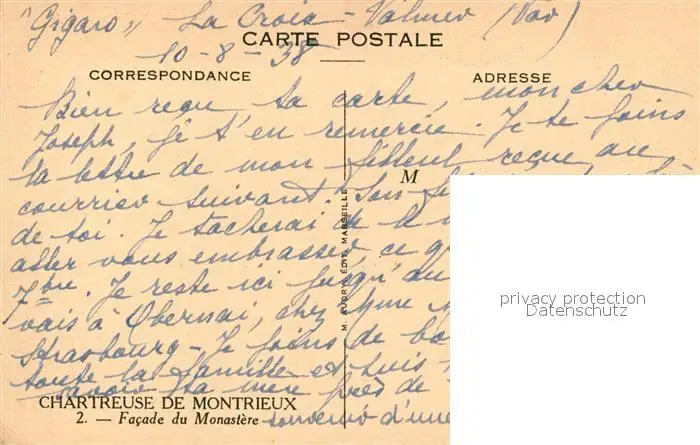 "Gigaro" La Croix-Valmer (Var)
10-8-38
CARTE POSTALE
CORRESPONDANCE
ADRESSE
Bien reçu ta carte, mon cher
Joseph, je t'en remercie. Je te joins
la lettre de mon filleul reçue au
M
courrier suivant. Son
de toi. Je tacherai de
aller vous embrasser, ce
7bre. Je reste ici jusqu'au
vais à Obernai, chez Mme
Strasbourg - Je joins de
toute la famille et suis
savoir ta mère près de
souvenir d'une
M. AUDRY, ÉDIT. MARSEILLE
CHARTREUSE DE MONTRIEUX
2. — Façade du Monastère
privacy protection
Datenschutz